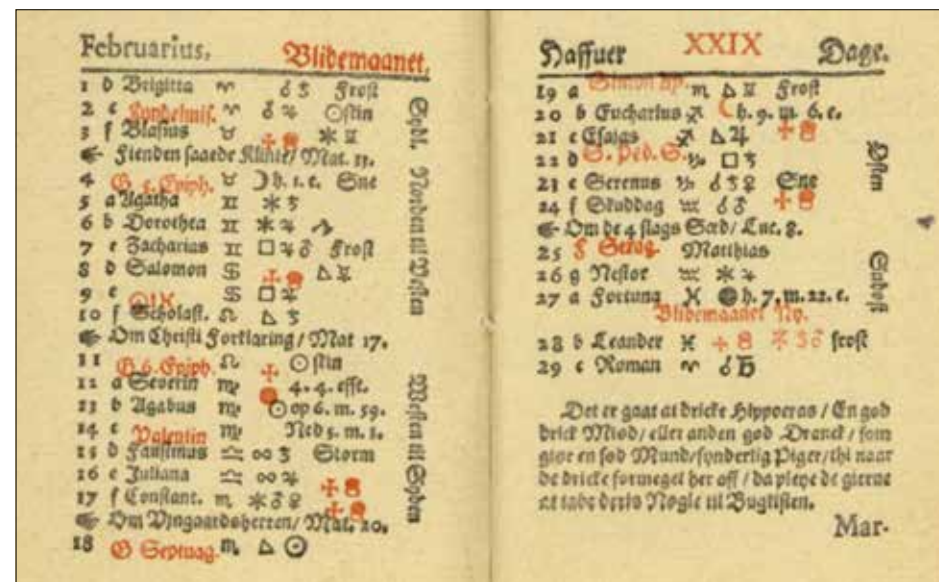 Februarius, Blidemaanet,
1 d Brigitta ♈ ☌ ♂ Frost
2 e Kyndelmiſ. ♈ ☌ ♃ ☉ſkin
3 f Blaſius ♉ ✶
Fienden ſaaede Klinte/ Mat. 13.
4 G 5. Epiph. ♉ ☽ h. 1. e. Sne
5 a Agatha ♊ ✶
6 b Dorothea ♊ ✶ ♃
7 c Zacharias ♊ □ ♃ ♂ Frost
8 d Salomon ♋ △
9 e ♋ □ ♃
10 f Scholaſt. ♌ △
Om Chriſti Forklaring/ Mat 17.
11 G 6. Epiph. ♌ ☉ſkin
12 a Severin ♍ 4. 4. efft.
13 b Agabus ♍ ☉ op 6. m. 59.
14 c Valentin ♍ Ned 5. m. 1.
15 d Fauſtinus ♎ Storm
16 e Juliana ♎ ♃
17 f Conſtant. ♏ ✶
Om Vingaardsherren/ Mat. 20.
18 G Septuag. ♏ △ ☉
Sydl. Norden til Veſten
Veſten til Synden
Haffuer XXIX Dage.
19 a Simon ♏ △ Froſt
20 b Eucharius ♐ ☾ h. 9. m. 6. e.
21 c Eſaias ♐ △ ♃
22 d S. Ped. S. ♑ □
23 e Serenus ♑ ☌ ♀ Sne
24 f Skuddag ♒ ☌
Om de 4 ſlags Sæd/ Luc. 8.
25 Matthias
26 g Neſtor ♒ ✶ ♃
27 a Fortuna ♓ h. 7. m. 22. e.
Blidemaanet Ny.
28 b Leander ♓ froſt
29 c Roman ♈ ☌ ♄
Øſten
Det er gaat at dricke Hippocras / En god
drick Miød/ eller anden god Dranck / ſom
giør en ſød Mund/ ſynderlig Piger/ thi naar
de dricke formeget her aff / da pleye de gierne
at tabe deris Nøgle til Bugliſten.
Mar-